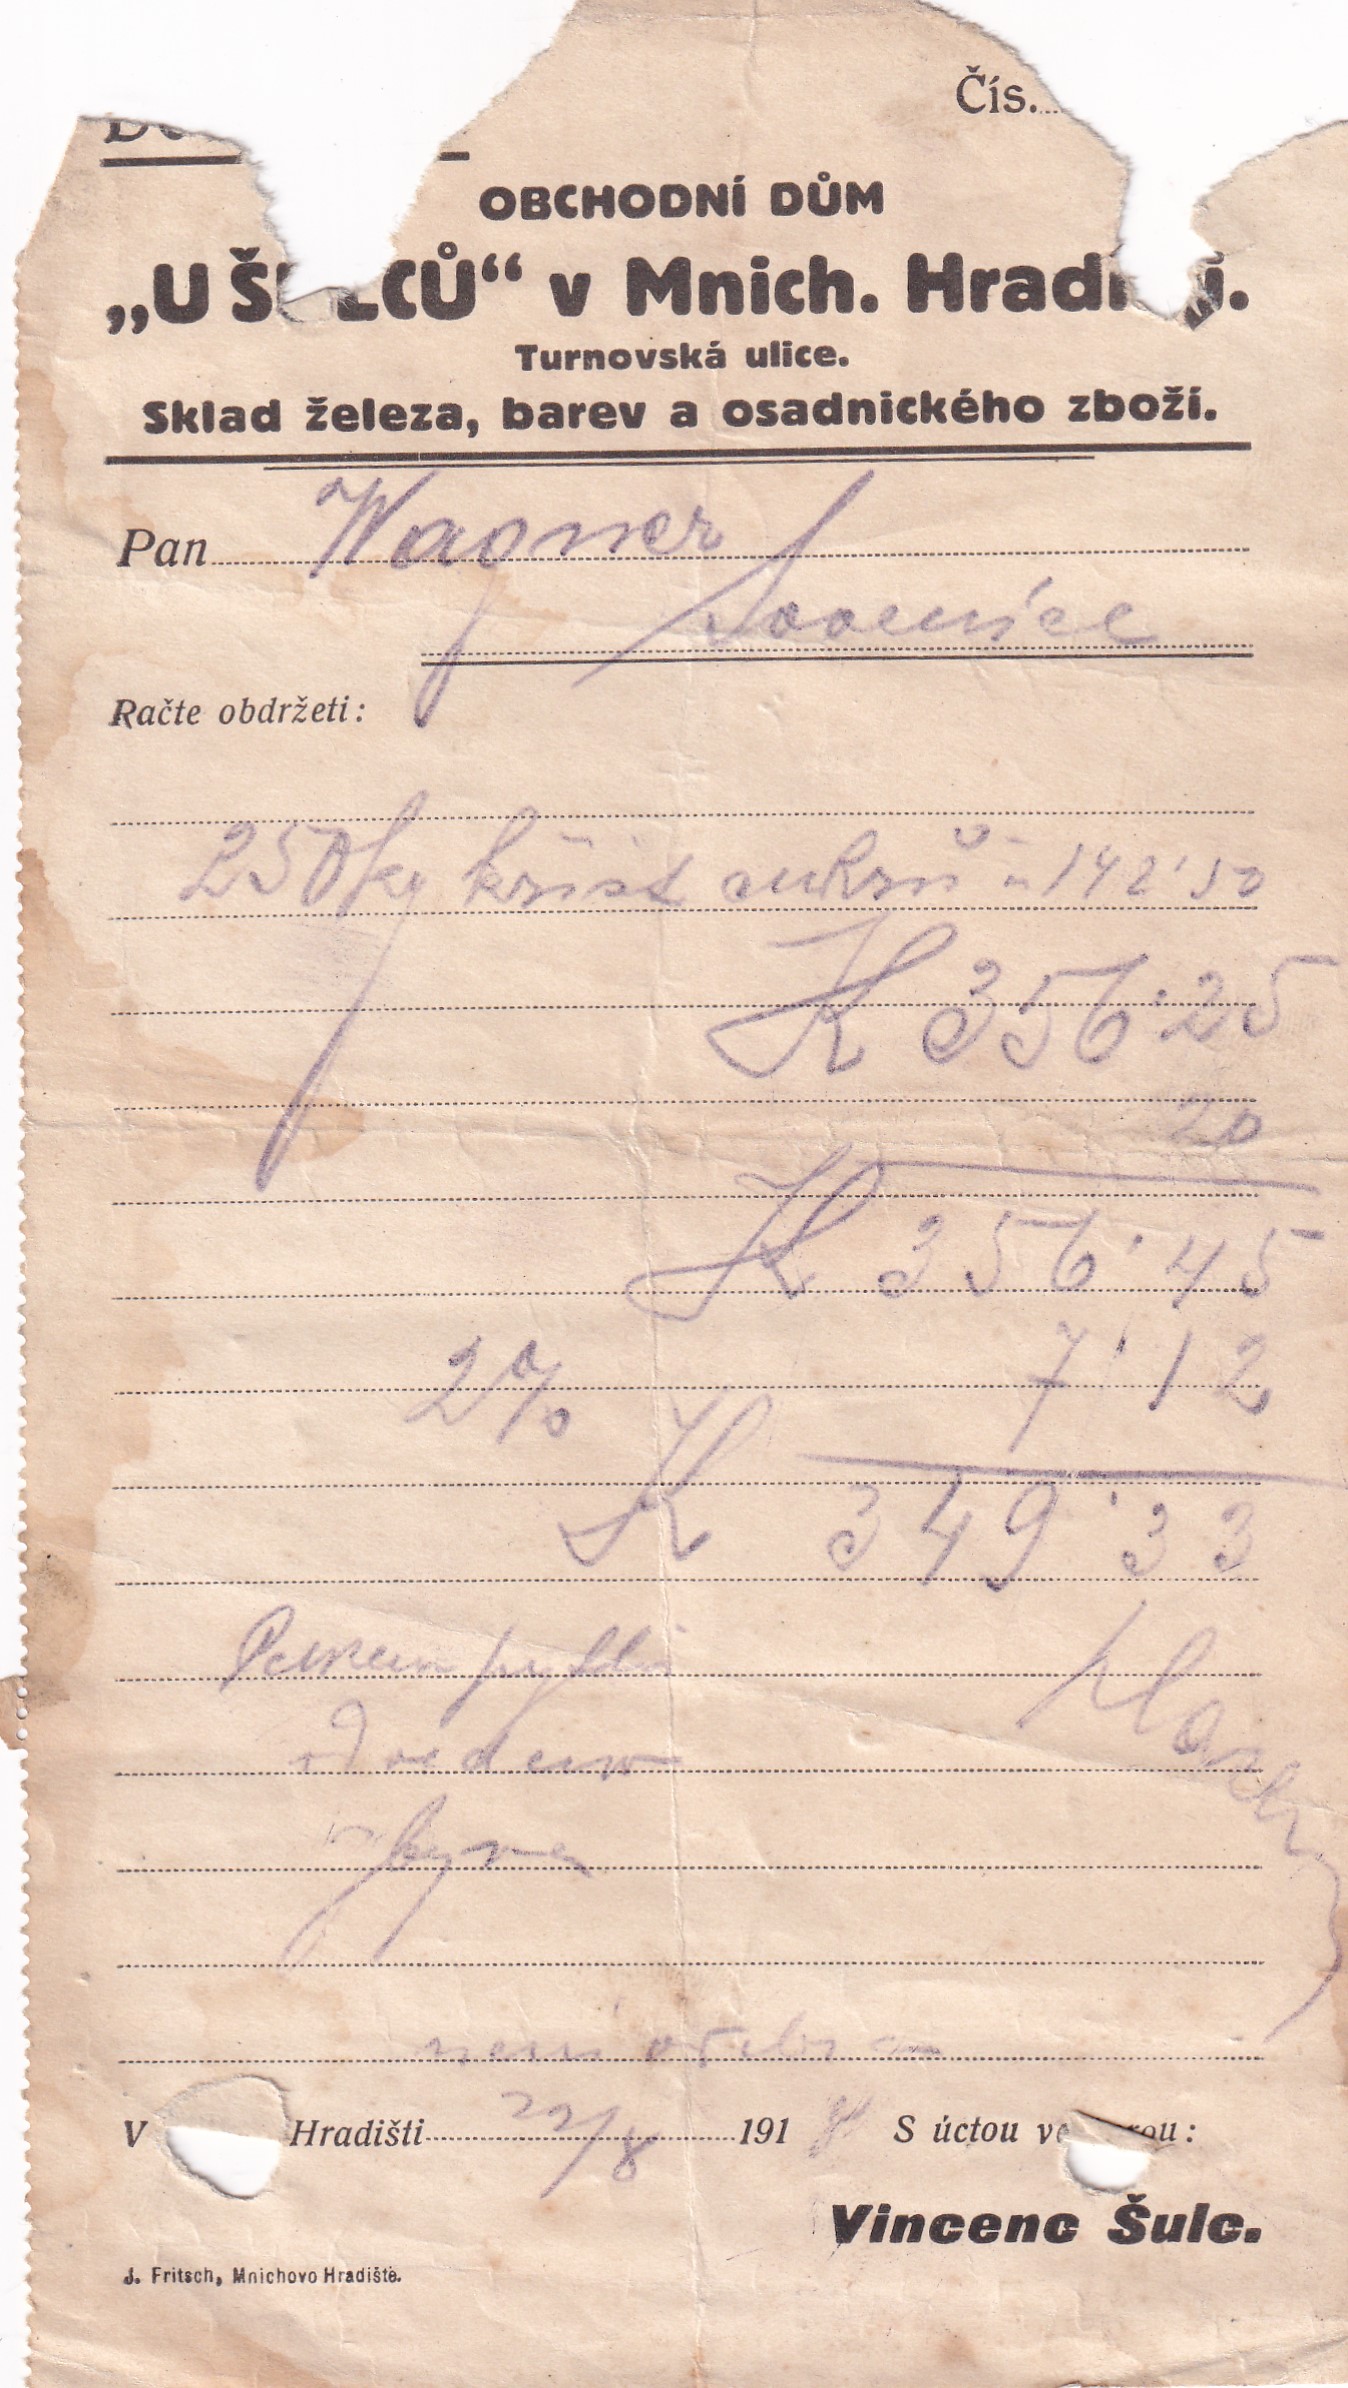 Čís.
OBCHODNÍ DŮM
„U ŠULCŮ“ v Mnich. Hradišti.
Turnovská ulice.
Sklad železa, barev a osadnického zboží.
Pan Wagner
Račte obdržeti:
250 kg krist cukrů à 142·50
K 356·25
20
K 356·45
2% 7·12
K 349·33
není
V Hradišti 22/8 1918 S úctou veškerou:
Vincenc Šulc.
J. Fritsch, Mnichovo Hradiště.